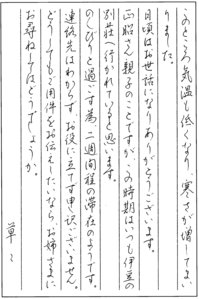 このところ気温も低くなり、寒さが増してまい
りました。
日頃はお世話になりありがとうございます。
正昭さん親子のことですが、この時期はいつも伊豆の
別荘へ行かれていると思います。
のんびりと過ごす為、二週間程の滞在のようです。
連絡先はわからず、お役に立てず申し訳ございません。
どうしてもご用件をお伝えしたいなら、お姉さまに
お尋ねしてはどうでしょうか。
草々